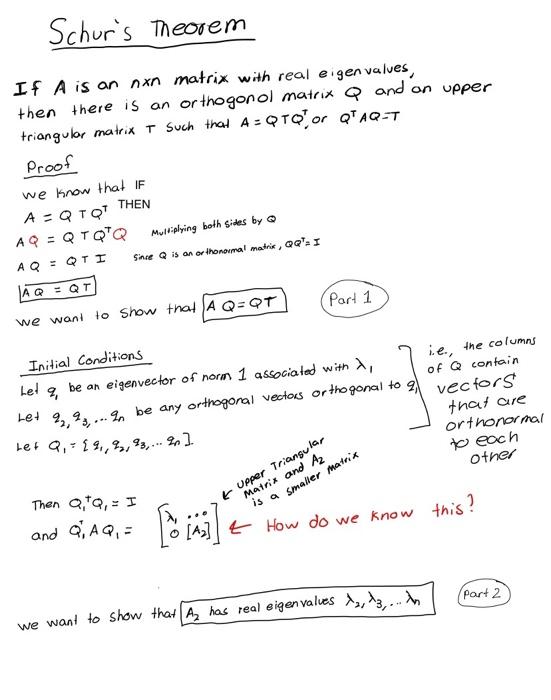 Schur's Theorem
If A is an nxn matrix with real eigenvalues,
then there is an orthogonol matrix Q and an upper
triangular matrix T Such that A = QTQᵀ, or QᵀAQ=T
Proof
we know that IF
A = QTQᵀ THEN
AQ = QTQᵀQ Multiplying both sides by Q
AQ = QTI Since Q is an orthonormal matrix, QQᵀ=I
AQ = QT
we want to show that AQ=QT Part 1
Initial Conditions
Let q₁ be an eigenvector of norm 1 associated with λ₁
Let q₂, q₃, ... qₙ be any orthogonal vectors orthogonal to q₁
Let Q₁ = [q₁, q₂, q₃, ... qₙ].
i.e., the columns
of Q contain
vectors
that are
orthonormal
to each
other
Upper Triangular
Matrix and A₂
is a smaller matrix
Then Q₁ᵀQ₁ = I
and Q₁ᵀAQ₁ = [λ₁ ...
0 [A₂]] ← How do we know this?
we want to show that A₂ has real eigenvalues λ₂, λ₃, ... λₙ Part 2